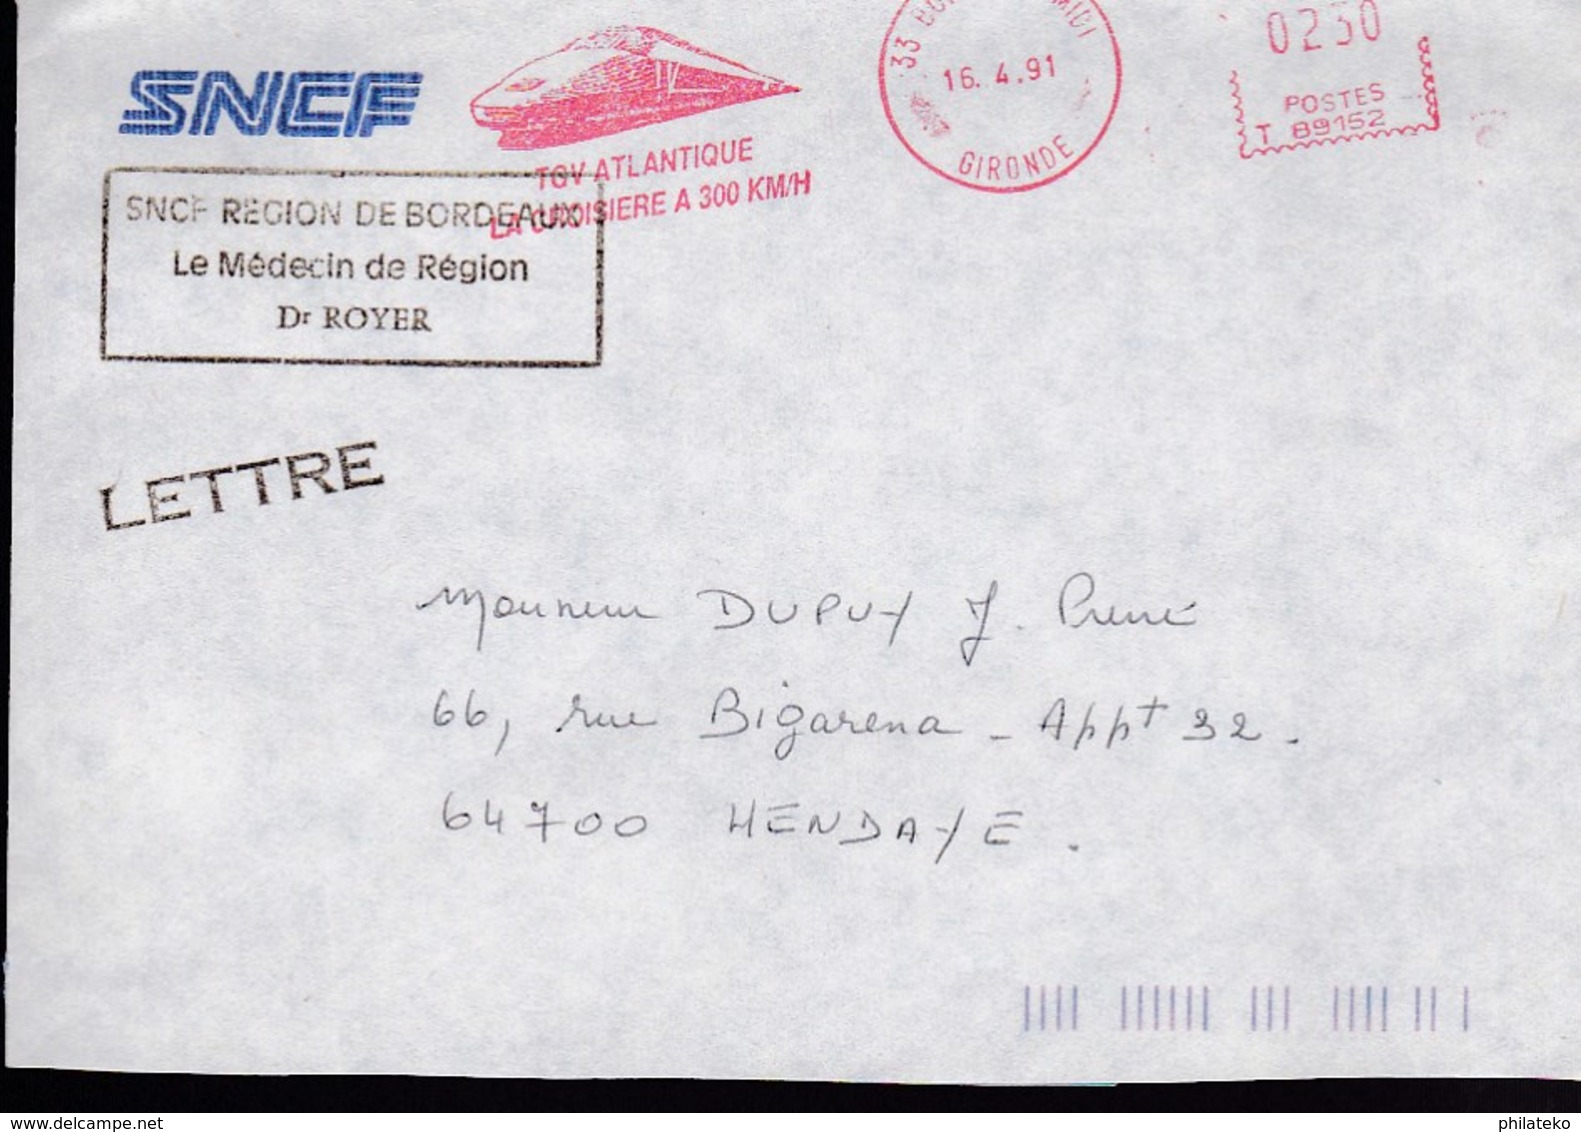 SNCF
TGV ATLANTIQUE
LA CROISIERE A 300 KM/H
33
MIDI
16. 4. 91
GIRONDE
0230
POSTES
T 89152
SNCF REGION DE BORDEAUX
Le Médecin de Région
Dr ROYER
LETTRE
Monsieur DUPUY J. Pierre
66, rue Bigarena - Appt 32.
64700 HENDAYE.
www.delcampe.net
philateko